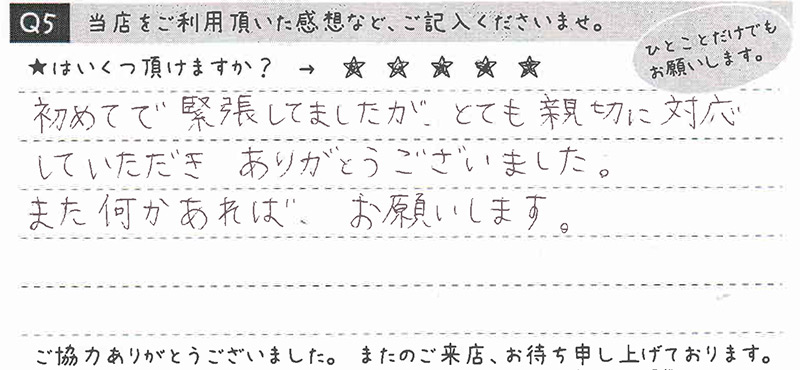 Q5 当店をご利用頂いた感想など、ご記入くださいませ。
ひとことだけでも
お願いします。
★はいくつ頂けますか？ → ☆ ☆ ☆ ☆ ☆
初めてで緊張してましたが、とても親切に対応
していただき ありがとうございました。
また何かあれば、お願いします。
ご協力ありがとうございました。 またのご来店、お待ち申し上げております。